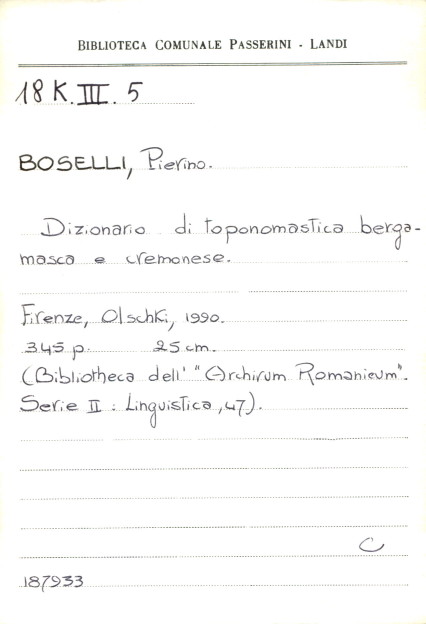 BIBLIOTECA COMUNALE PASSERINI - LANDI
18 K. III. 5
BOSELLI, Pierino.
Dizionario di toponomastica berga-
masca e cremonese.
Firenze, Olschki, 1990.
345 p. 25 cm.
(Bibliotheca dell' "Archivum Romanicum".
Serie II : Linguistica, 47).
C
187933